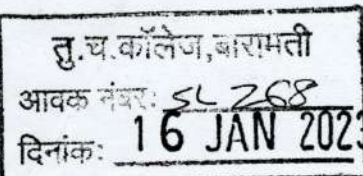 तु.च.कॉलेज,बारामती
आवक नंबर: SL 268
दिनांक: 16 JAN 2023